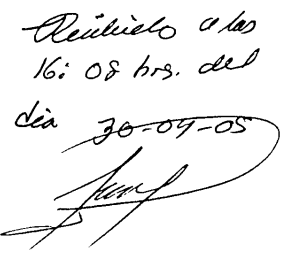 Recibido a las
16:08 hrs. del
dia 30-04-05